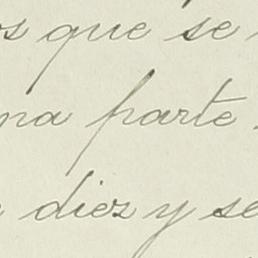 os que se
na parte
diez y se